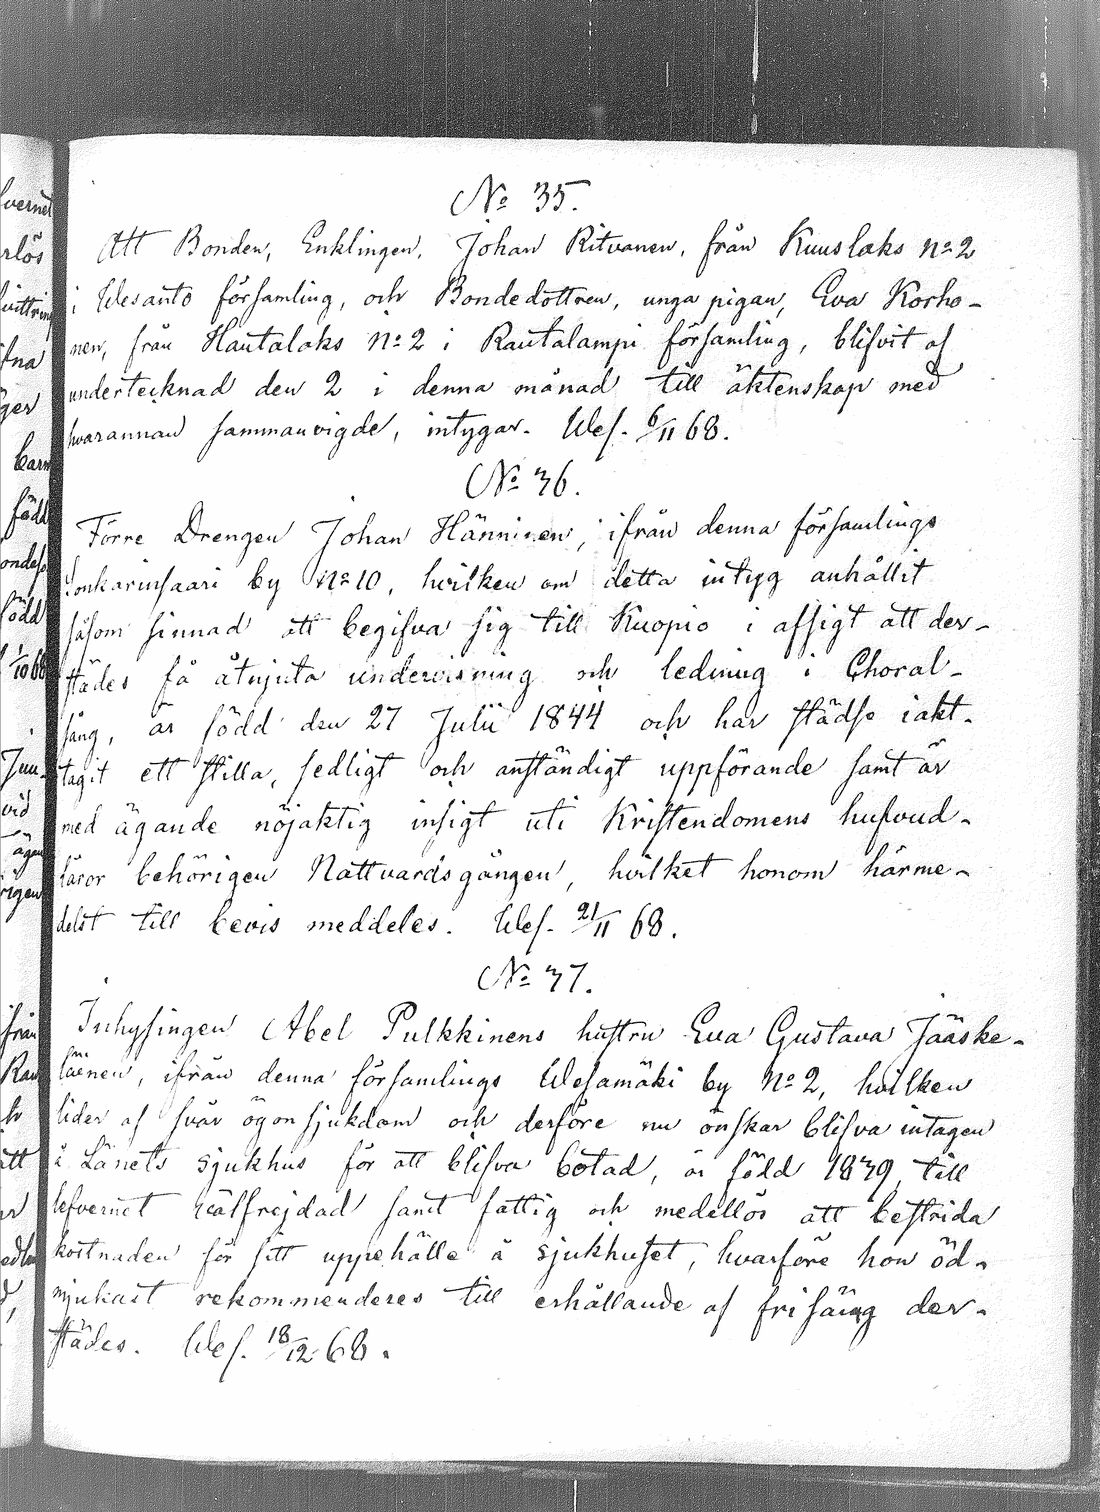 No 35.
Att Bonden, Enklingen, Johan Ritvanen, från Kuuslaks No 2
i Wesanto församling, och Bondedottren, unga pigan, Eva Korho-
nen, från Hautalaks No 2 i Rautalampi församling, blifvit af
undertecknad den 2 i denna månad till äktenskap med
hvarannan sammanvigde, intygar. Wes. 6/11 68.
No 36.
Förre Drengen Johan Hänninen, ifrån denna församlings
Sonkarinsaari by No 10, hvilken om detta intyg anhållit
såsom sinnad att begifva sig till Kuopio i afsigt att der-
städes få åtnjuta undervisning och ledning i Choral-
sång, är född den 27 Julii 1844 och har städse iakt-
tagit ett stilla, sedligt och anständigt uppförande samt är
med ägande nöjaktig insigt uti Kristendomens hufvud-
läror behörigen Nattvardsgången, hvilket honom härme-
delst till bevis meddeles. Wes. 21/11 68.
No 37.
Inhysingen Abel Pulkkinens hustru Eva Gustava Jääske-
läinen, ifrån denna församlings Wesamäki by No 2, hvilken
lider af svår ögonsjukdom och derföre nu önskar blifva intagen
å Länets sjukhus för att blifva botad, är född 1839, till
lefvernet välfrejdad samt fattig och medellös att bestrida
kostnaden för sitt uppehälle å sjukhuset, hvarföre hon öd-
mjukast rekommenderes till erhållande af frisäng der-
städes. Wes. 18/12 68.
vernet
rlös
fna
ger
barn
född
född
1/10 68
Juu-
vid
ägan
rigen
ifrån
Rau